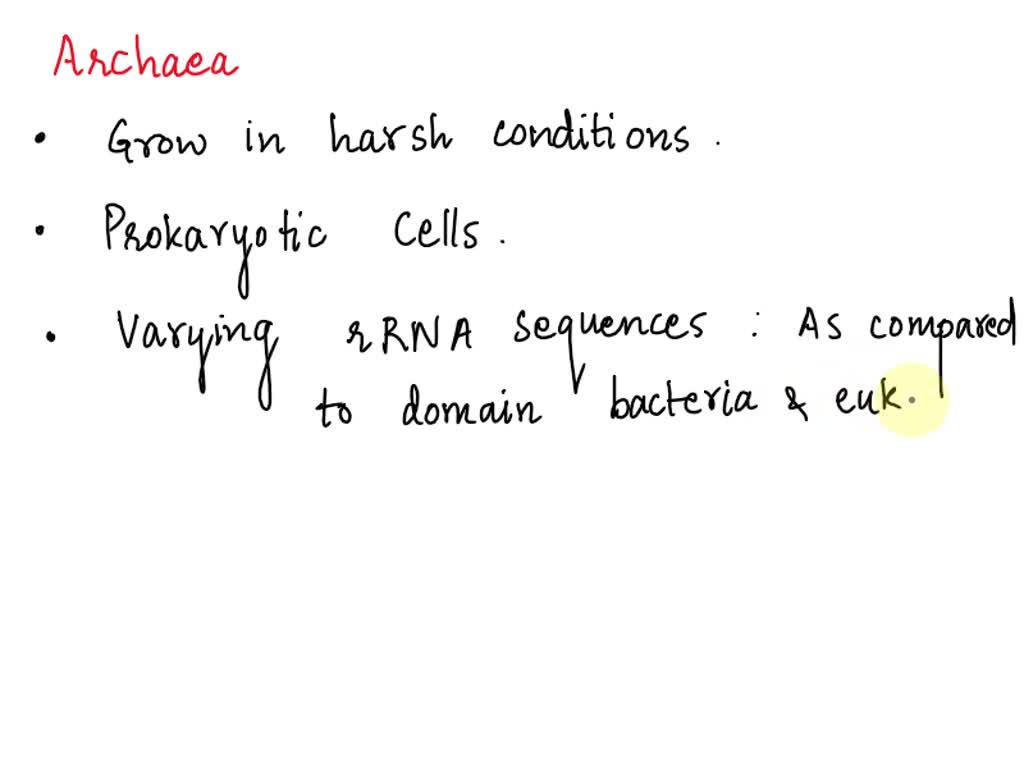 Archaea
• Grow in harsh conditions.
• Prokaryotic Cells.
• Varying rRNA sequences : As compared
to domain bacteria & euk.